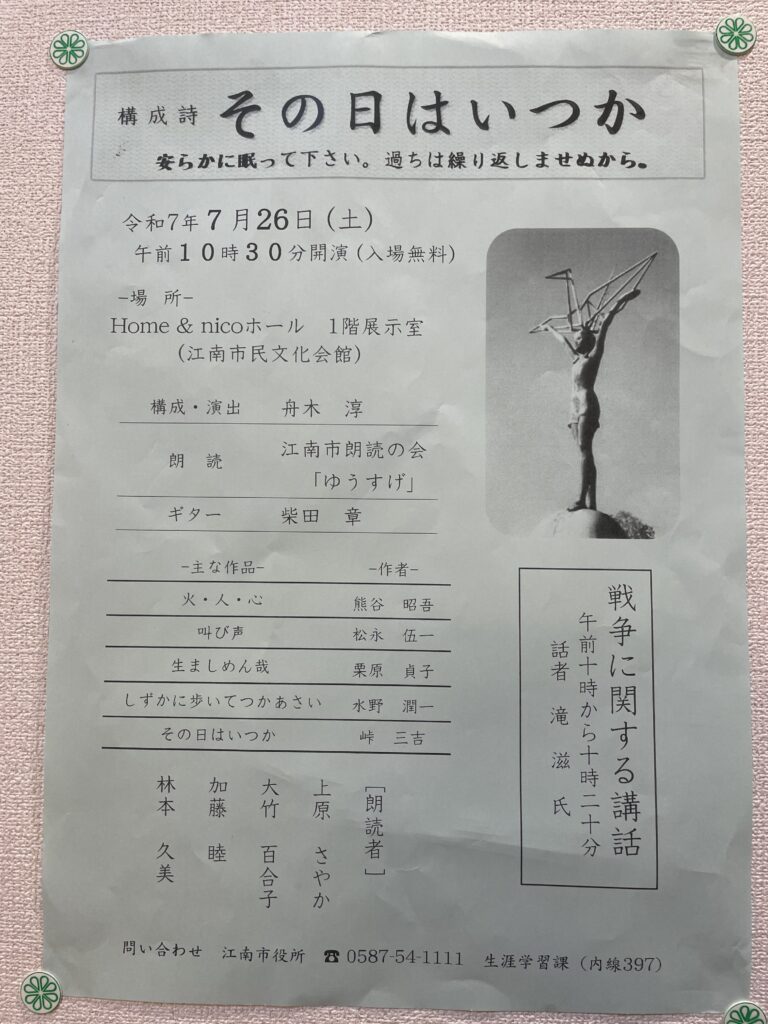 構成詩 その日はいつか
安らかに眠って下さい。過ちは繰り返しませぬから。
令和7年７月26日(土)
午前１０時３０分開演(入場無料)
−場 所−
Home & nicoホール 1階展示室
(江南市民文化会館)
構成・演出 舟木 淳
朗 読 江南市朗読の会
「ゆうすげ」
ギター 柴田 章
−主な作品− −作者−
火・人・心 熊谷 昭吾
叫び声 松永 伍一
生ましめん哉 栗原 貞子
しずかに歩いてつかあさい 水野 潤一
その日はいつか 峠 三吉
戦争に関する講話
午前十時から十時二十分
話者 滝 滋 氏
[朗読者]
上原 さやか
大竹 百合子
加藤 睦
林本 久美
問い合わせ 江南市役所 ☎ 0587-54-1111 生涯学習課 (内線397)